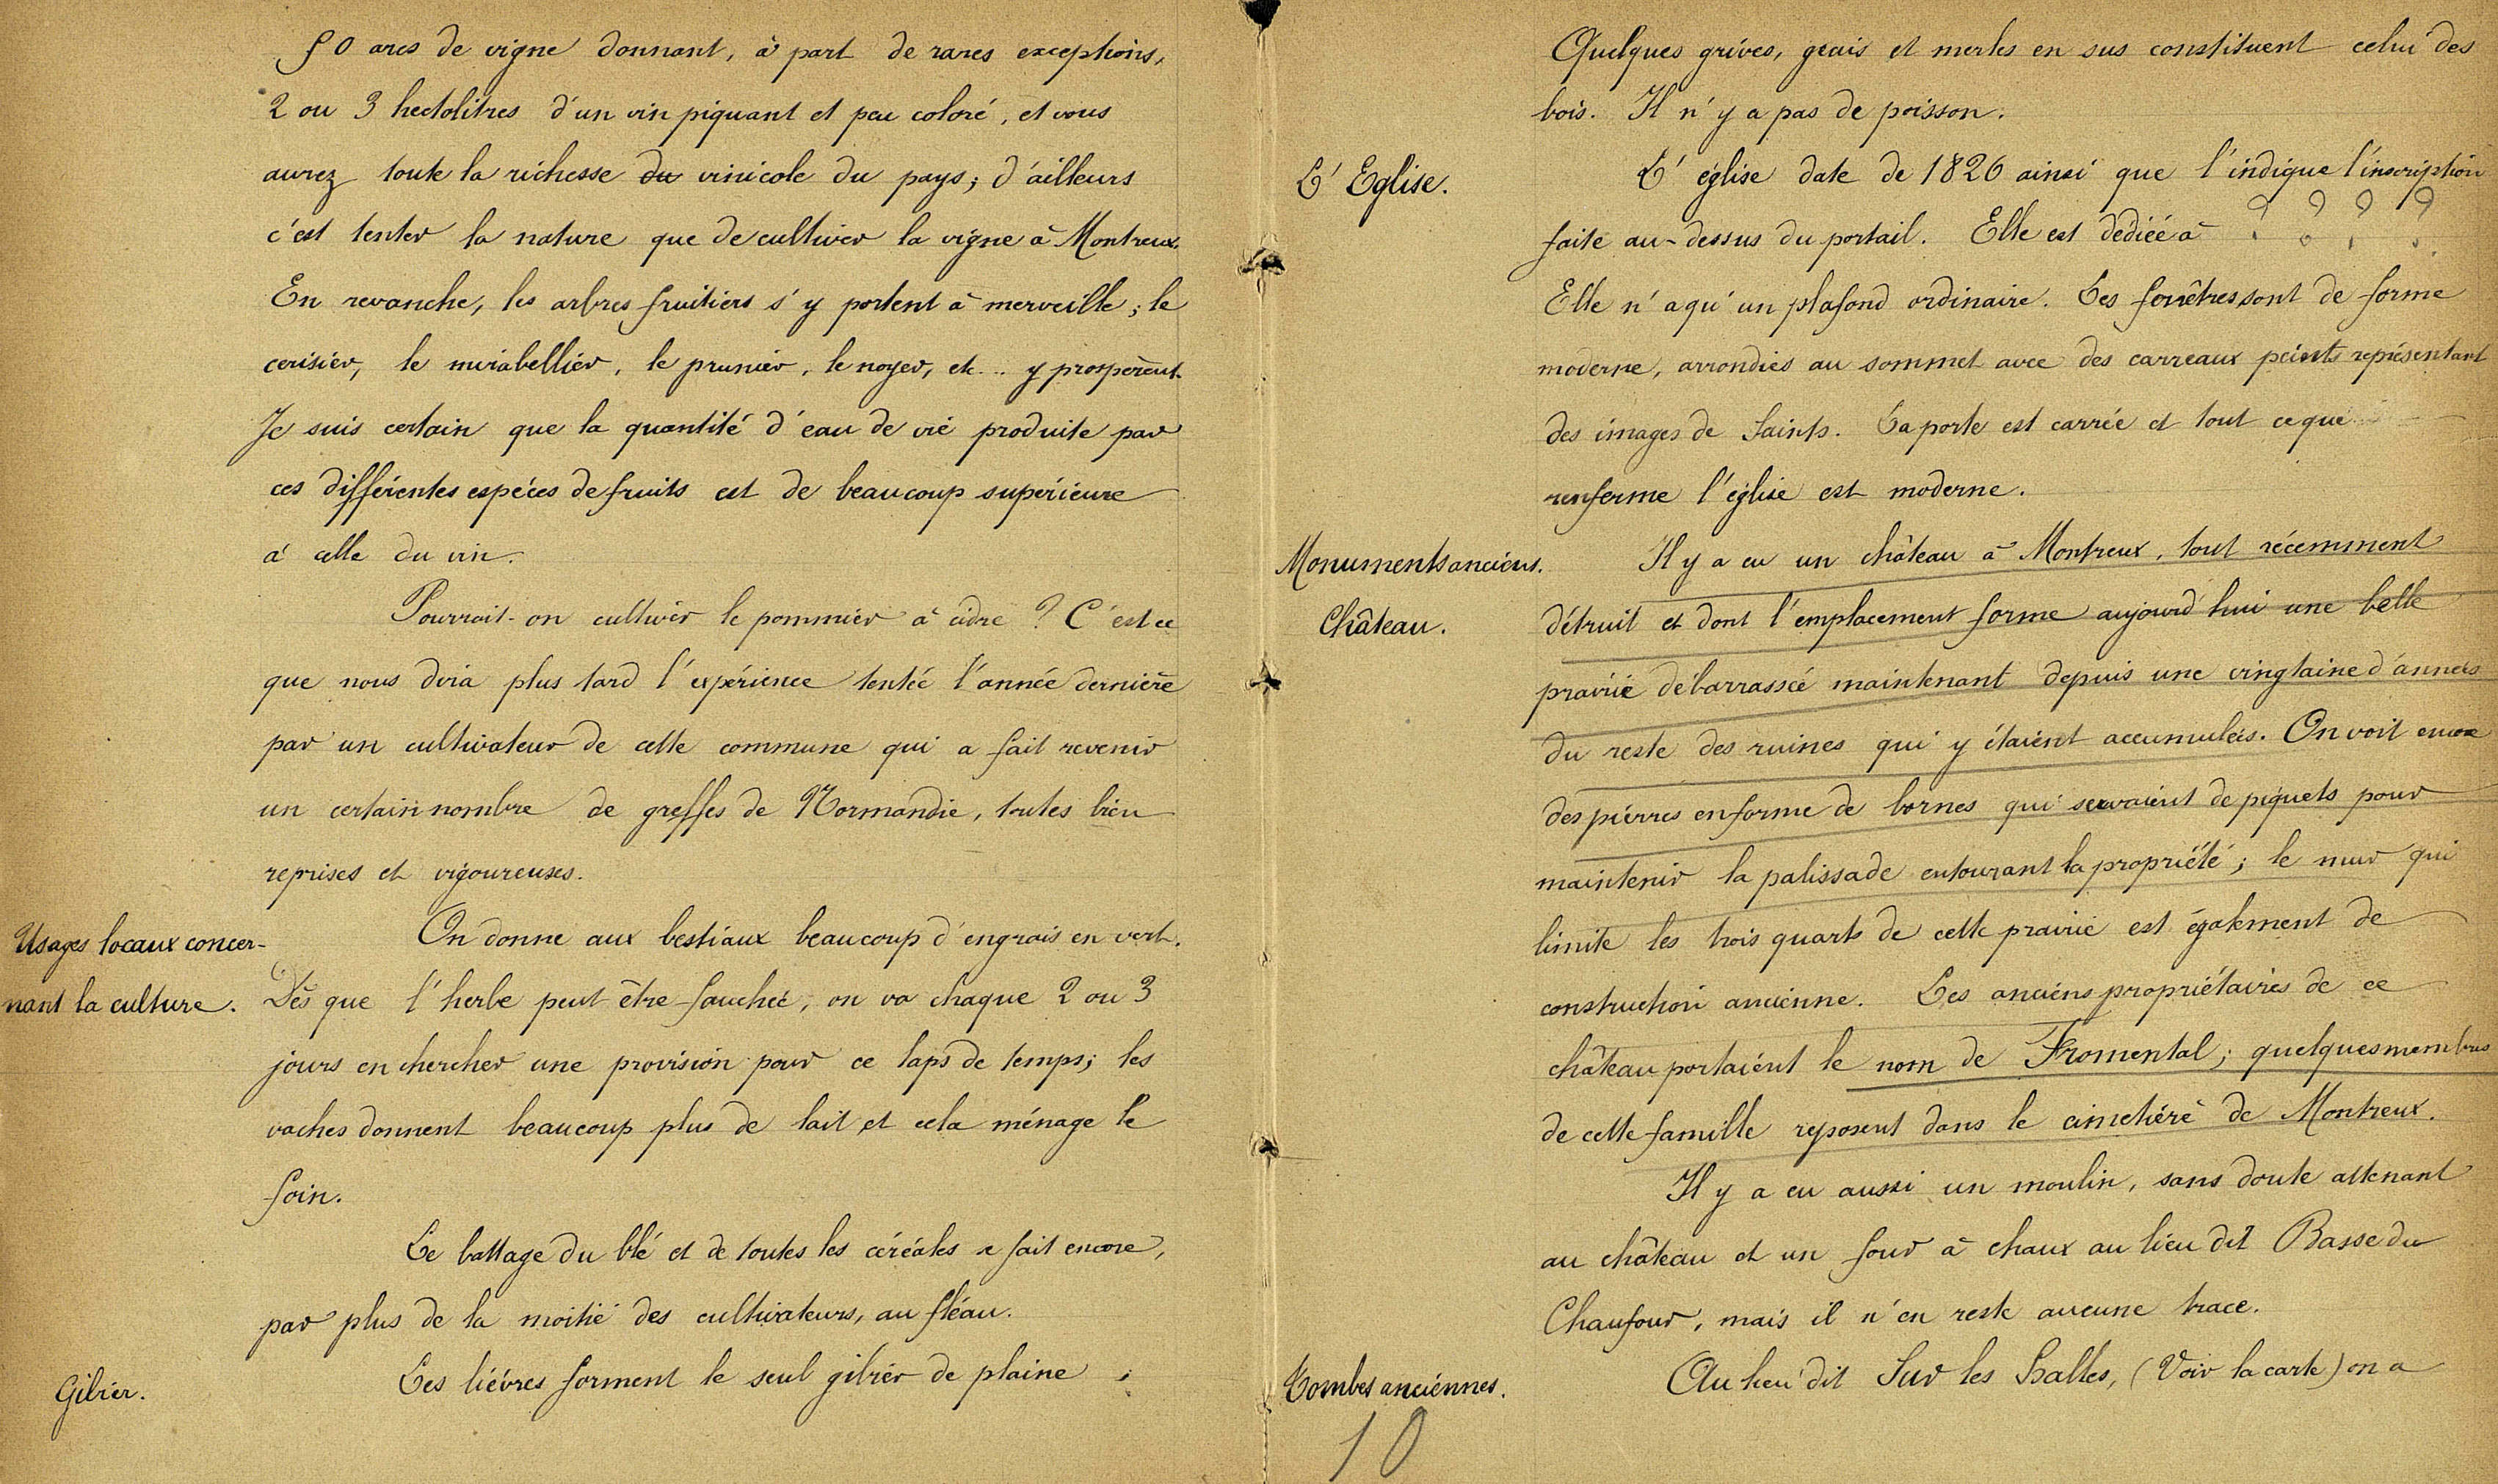 50 ares de vigne donnant, à part de rares exceptions,
2 ou 3 hectolitres d'un vin piquant et peu coloré, et vous
aurez toute la richesse du vinicole du pays; d'ailleurs
c'est tenter la nature que de cultiver la vigne à Montreux.
En revanche, les arbres fruitiers s'y portent à merveille; le
cerisier, le mirabellier, le prunier, le noyer, etc... y prospèrent.
Je suis certain que la quantité d'eau de vie produite par
ces différentes espèces de fruits est de beaucoup supérieure
à celle du vin.
Pourrait-on cultiver le pommier à cidre? C'est ce
que nous dira plus tard l'expérience tentée l'année dernière
par un cultivateur de cette commune qui a fait revenir
un certain nombre de greffes de Normandie, toutes bien
reprises et vigoureuses.
Usages locaux concer-
nant la culture.
On donne aux bestiaux beaucoup d'engrais en vert.
Dès que l'herbe peut être fauchée, on va chaque 2 ou 3
jours en chercher une provision pour ce laps de temps; les
vaches donnent beaucoup plus de lait et cela ménage le
foin.
Le battage du blé et de toutes les céréales se fait encore,
par plus de la moitié des cultivateurs, au fléau.
Gibier.
Les lièvres forment le seul gibier de plaine;
Quelques grives, geais et merles en sus constituent celui des
bois. Il n'y a pas de poisson.
L'Eglise.
L'église date de 1826 ainsi que l'indique l'inscription
faite au-dessus du portail. Elle est dédiée à ? ? ? ?
Elle n'a qu'un plafond ordinaire. Les fenêtres sont de forme
moderne, arrondies au sommet avec des carreaux peints représentant
des images de Saints. La porte est carrée et tout ce que
renferme l'église est moderne.
Monuments anciens.
Château.
Il y a eu un château à Montreux, tout récemment
détruit et dont l'emplacement forme aujourd'hui une belle
prairie débarrassée maintenant depuis une vingtaine d'années
du reste des ruines qui y étaient accumulées. On voit encore
des pierres en forme de bornes qui servaient de piquets pour
maintenir la palissade entourant la propriété; le mur qui
limite les trois quarts de cette prairie est également de
construction ancienne. Les anciens propriétaires de ce
château portaient le nom de Fromental; quelques membres
de cette famille reposent dans le cimetière de Montreux.
Il y a eu aussi un moulin, sans doute attenant
au château et un four à chaux au lieu dit Basse du
Chaufour, mais il n'en reste aucune trace.
Tombes anciennes.
Au lieu dit Sur les Halles, (Voir la carte) on a
10